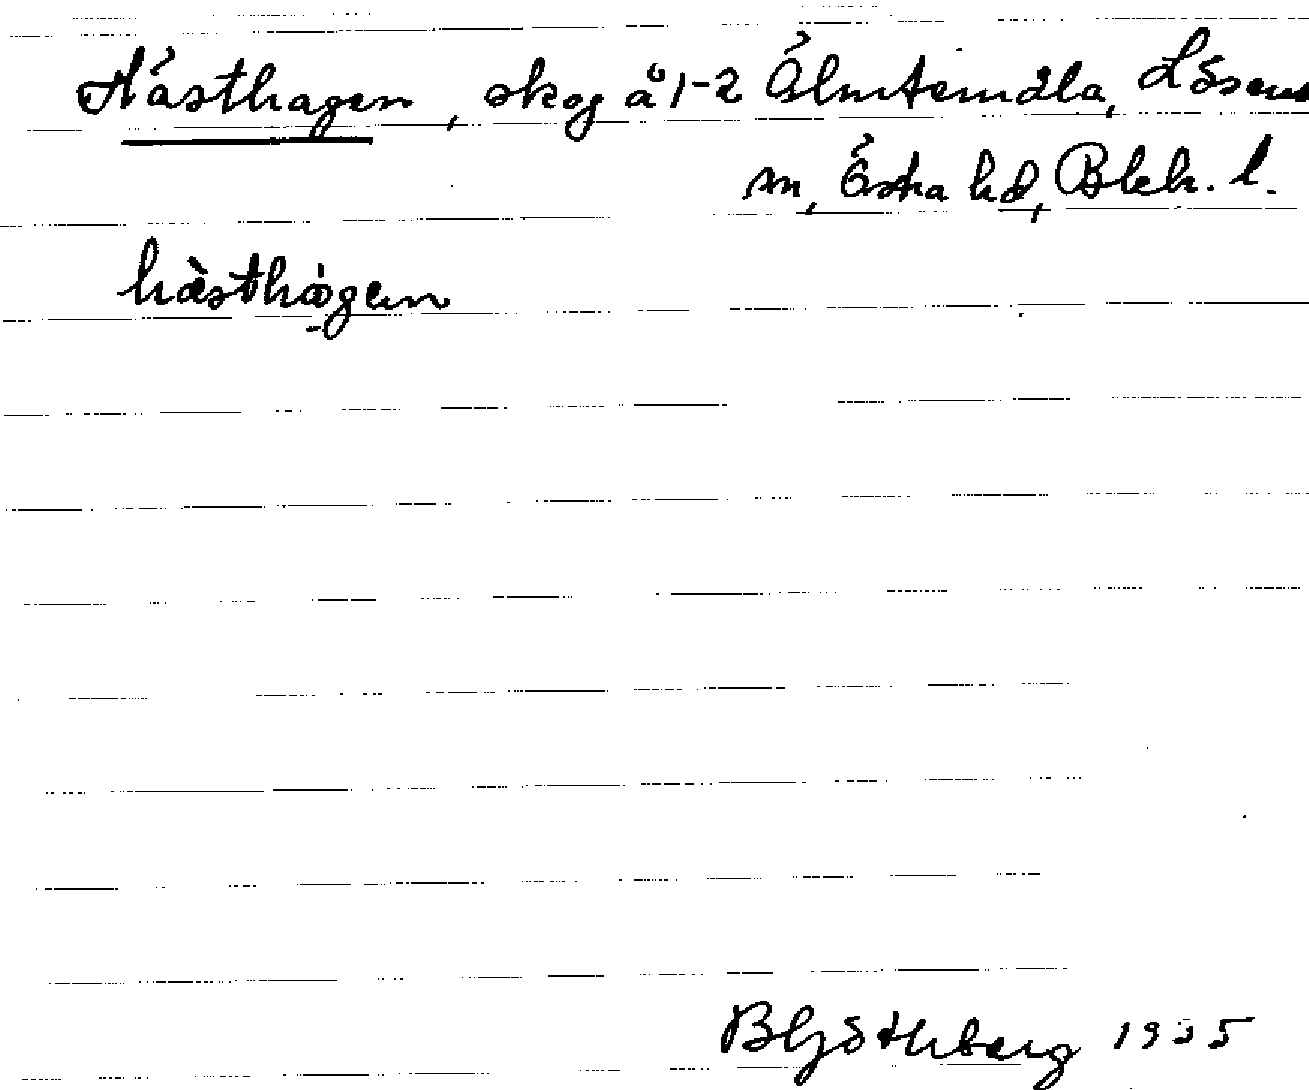 Hästhagen, skog å 1-2 Älmtamåla, Lösens
sn, Östra hd, Blek. l.
hä̀sthàgen
B Ljöthberg 1935